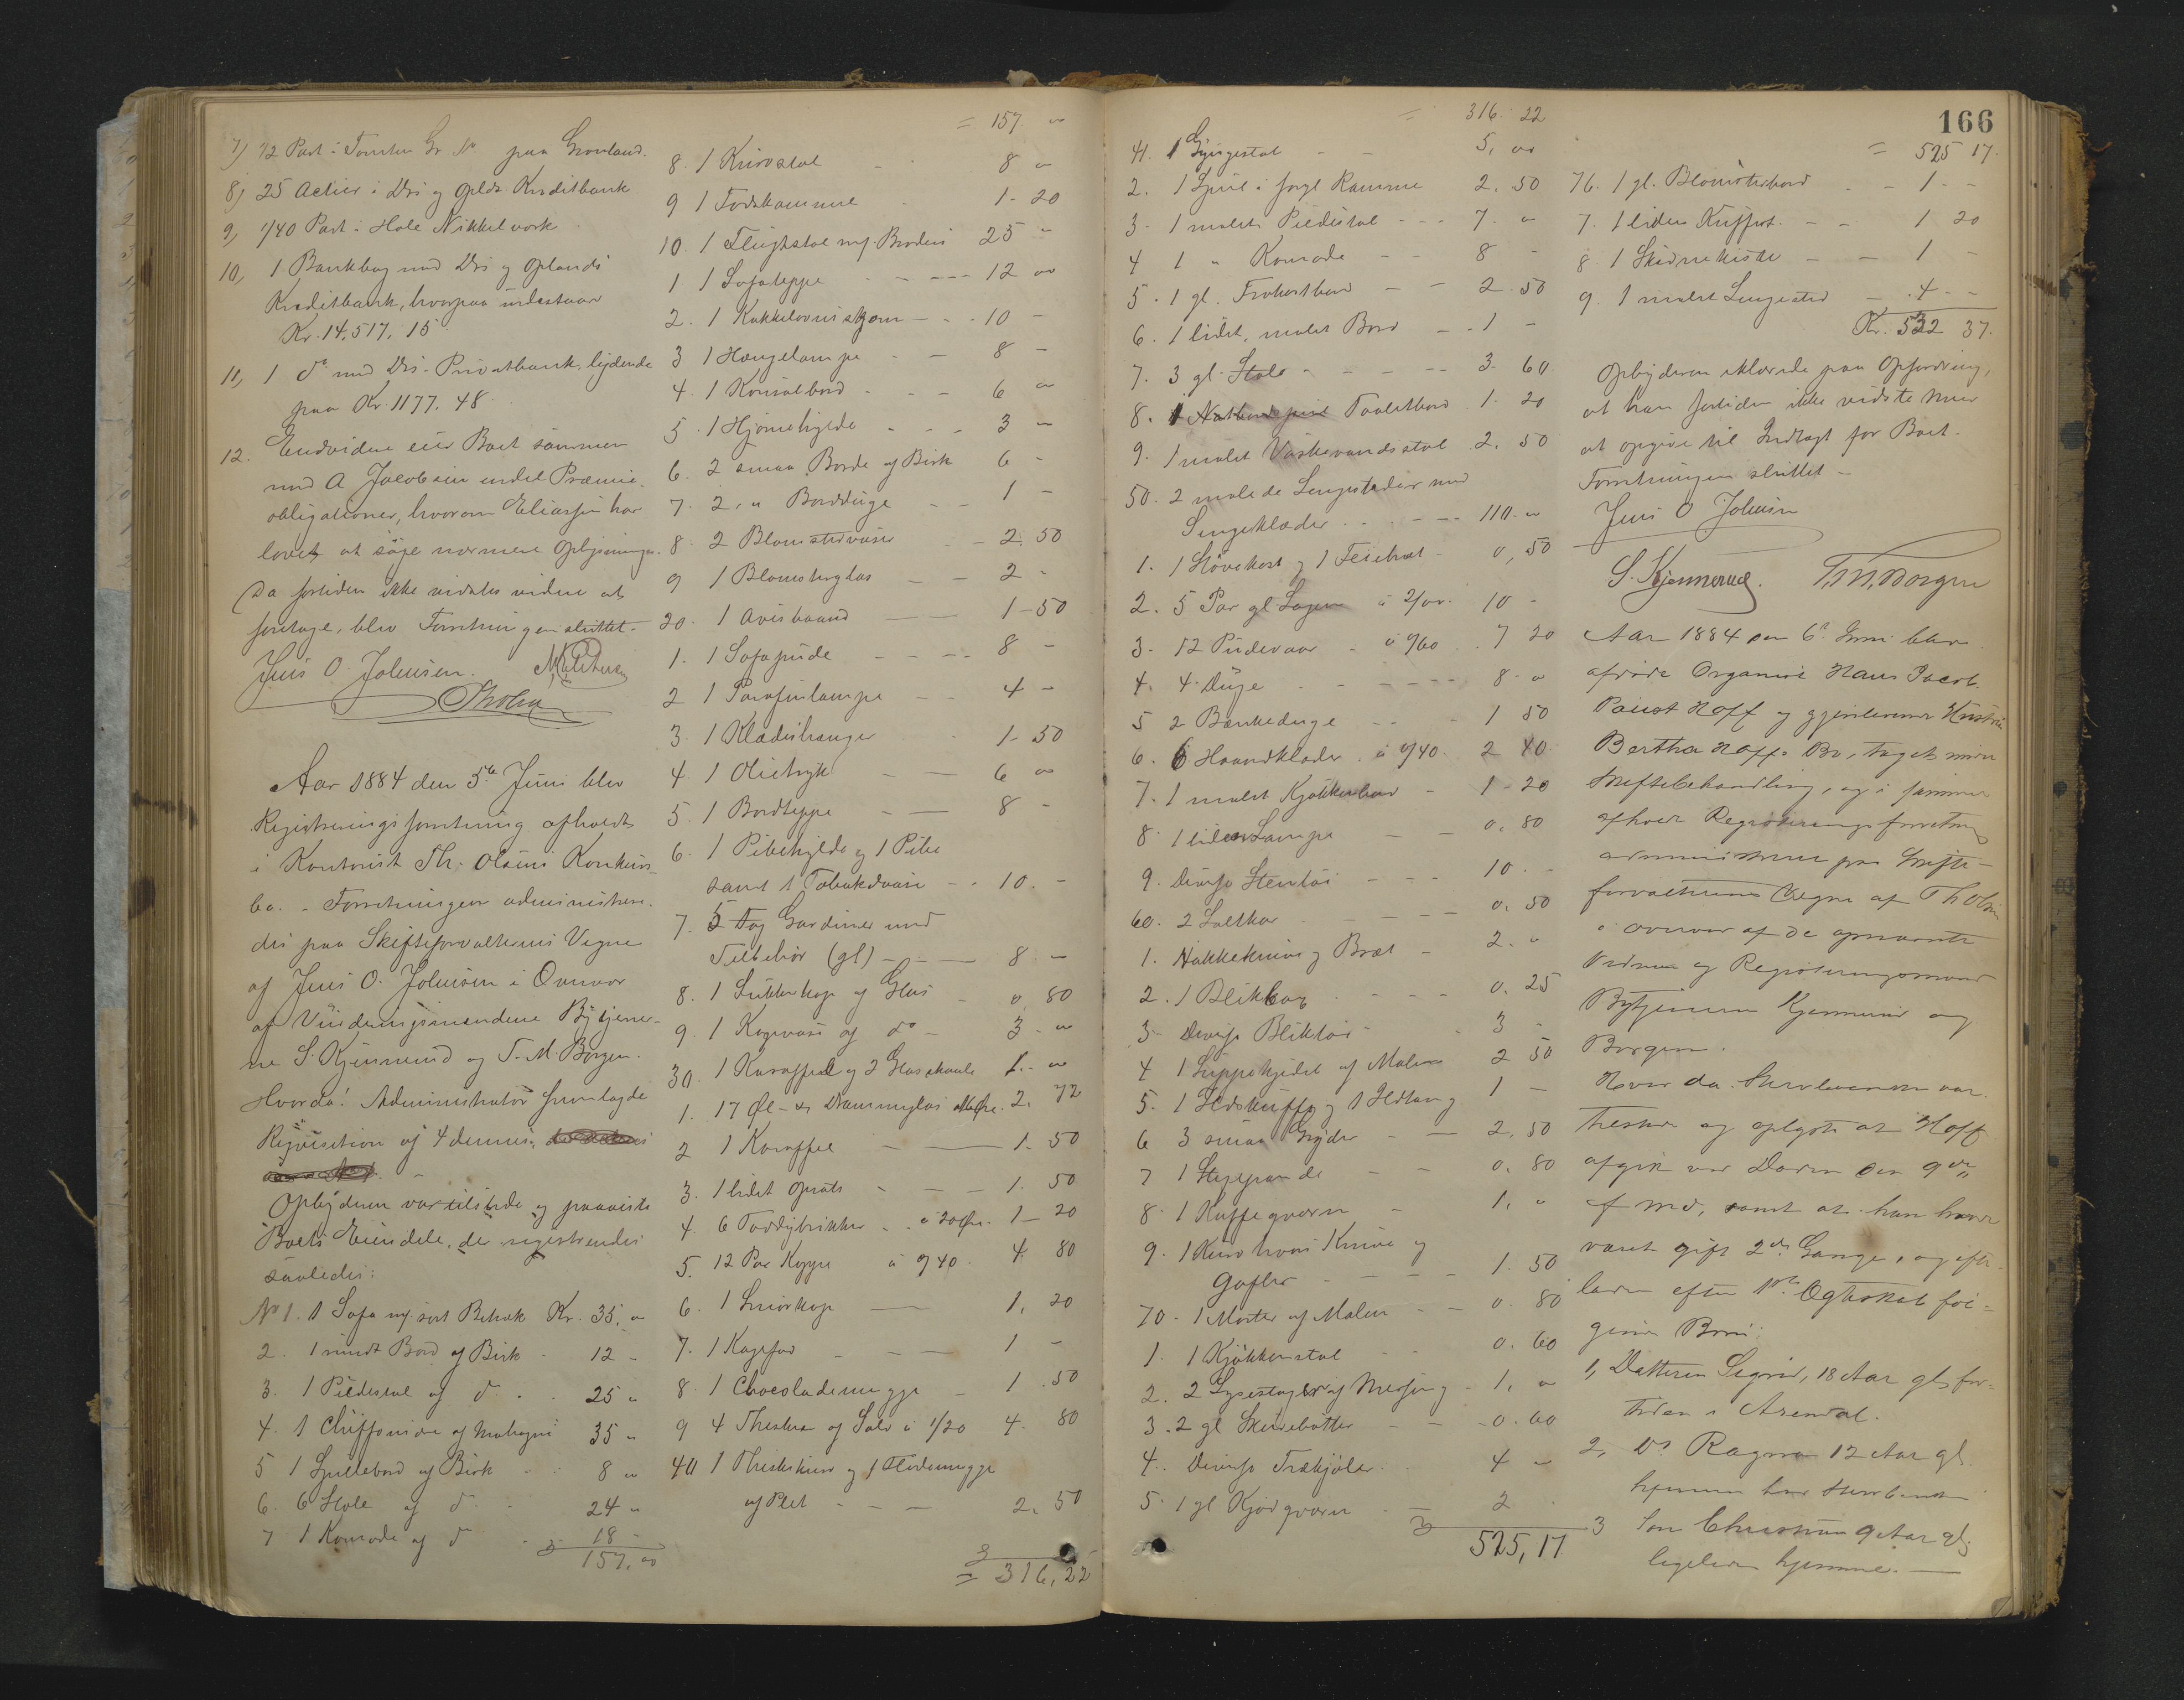 7) 1/2 Part i Tomten Gr. No paa Grønland.
8) 25 Actier i Drs og Oplds Kreditbank
9) 1/40 Part i Hole Nikkelverk
10) 1 Bankbog med Drs og Oplands
Kreditbank, hvorpaa indestaar
Kr. 14,517. 15
11) 1 do med Drs. Privatbank, lydende
paa Kr. 1177. 48.
12. Endvidere eier Boet sammen
med A Jacobsen endel Præmie-
obligationer, hvorom Eliassen har
lovet at søge nærmere Oplysninger.
Da fortiden ikke vidstes videre at
foretage, blev Forretningen sluttet.
Jens O. Johnsen.
Aar 1884 den 5te Juni blev
Registreringsforretning afholdt
i Kontorist Th. Olsens Konkurs-
bo. - Forretningen administrere-
des paa Skifteforvalterens Vegne
af Jens O. Johnsen i Overvær
af Vurderingsmændene Bytjener-
ne S. Kjennerud og T. M. Borgen.
Hvorda! Administrator fremlagde
Requisition af 4 dennes,
Opbyderen var tilstede og paaviste
Boets Eiendele, de registreredes
saaledes:
No 1. 1 Sofa m/ sort Betræk Kr. 35, "
2. 1 rundt Bord af Birk - 12 -
3. 1 Piedestal af do - 25 "
4. 1 Chiffonière af Mahogni 35 "
5 1 Spillebord af Birk 8 "
6. 6 Stole af do 24 "
7 1 Komode af do 18 -
157, "
= 157 "
8. 1 Kurvstol 8 "
9 1 Fodskammel 1- 20
10. 1 Fløighstol m/ Broderi 25 "
1 1 Sofateppe - - - 12 "
2. 1 Kakkelovnsskjærm - - 10 -
3 1 Hængelampe - - 8 -
4. 1 Konsolbord - - - 6 "
5 1 Hjørnehylde - - - 3 "
6. 2 smaa Borde af Birk 6 -
7. 2 " Bordduge - - 1 -
8. 2 Blomstervaser - 2. 50
9 1 Blomsterglas - - 2 -
20. 1 Avisbaand - 1-50
1. 1 Sofapude - - - 8 -
2 1 Parafinlampe - - 4 -
3. 1 Klædeshænger - 1- 50
4. 1 Olietryk - - 6 "
5. 1 Bordteppe - - 8 -
6. 1 Pibehylde og 1 Pibe
samt 1 Tobaksdaase - - 10. -
7. 5 Fag Gardiner med
Tilbehør (gl) - - - 8 -
8. 1 Sukkerkop af Glas - 0, 80
9. 1 Kagevase af do - 3 - "
30. 1 Karaffel og 2 Glasskaale 1. - "
1. 17 Øl- & Dramneglas 2. 72
2 1 Karaffel - - 1. 50
3. 1 lidet Opsats - - - 1. 50
4. 6 Toddybrikker - à 20 Øre. 1 - 20
5. 12 Par Kopper à "/40. 4. 80
6. 1 Smørkop - 1, 20
7. 1 Kagefad - - - 1 -
8. 1 Chocolademugge - 1 . 50
9 4 Theskeer af Sølv à 1/20 4. 80
40 1 Theskekurv og 1 Flødemugge
af Plet - - - 2, 50
= 316, 22
= 316. 22
41. 1 Gyngestol - - 5, "
2. 1 Speil i forgl Ramme 2. 50
3. 1 malet Piedistal - - - 7. "
4 1 " Komode - - 8 -
5. 1 gl. Frokostbord - - 2. 50
6. 1 lidet, malet Bord - - 1 -
7. 3 gl. Stole - - - - - 3. 60
8. 1 Toaletbord 1. 20
9. 1 malet Vaskevandsstol 2. 50
50. 2 malede Sengesteder med
Sengeklæder - - - - 110. "
1. 1 Støvekost og 1 Feiebræt - 0, 50
2. 5 Par gl Lagen à 2/00. 10 -
3. 12 Pudevaar - à "/60 . 7 20
4. 4 Duge - - - - - 8. "
5 2 Bænkeduge - - - 1 50
6. 6 Haandklæder . à "/40. 2 40
7. 1 malet Kjøkkenbord - 1 - 20
8. 1 liden Lampe - - 0. 80
9. Diverse Stentøi - - - 10. -
60. 2 Saltkar - - - - 0. 50
1. Hakkekniv og Bræt - 2. "
2. 1 Blikbox - - - 0. 25
3. Diverse Bliktøi - - 3 -
4 1 Suppekjedel af Malm 2 50
5. 1 Ildskuffe og 1 Ildtang 1 -
6 3 smaa Gryder - - 2. 50
7 1 Stegepande - - 0. 80
8. 1 Kaffeqværn - 1, "
9. 1 Kurv hvori Knive og
Gafler - - - - 1. 50
70. 1 Morter af Malm - - 0. 80
1. 1 Kjøkkenstol - - 0. 60
2. 2 Lysestager af Messing - 1. "
3. 2 gl Skurebøtter - - 0. 60
4. Diverse Trækjøler - 4 "
5. 1 gl Kjødqværn - - 2
525, 17
166
= 525 17.
76. 1 gl. Blomsterbord - - 1 - -
7. 1 liden Kuffert. - - 1 20
8. 1 Skidnekiste - - 1 -
9. 1 malet Sengested - 4 - -
Kr. 532 37.
Opbyderen erklærede paa Opfordring,
at han fortiden ikke vidste mere
at opgive til Indtægt for Boet.
Forretningen sluttet -
Jens O Johnsen
S. Kjennerud. T. M. Borgen
Aar 1884 den 6te Juni blev
afdøde Organist Hans Jacob
Hoff og gjenlevende Hustru
Bertha Hoffs Bo, taget under
Skiftebehandling, og i samme
afholdt Registreringsforretning
administreret paa Skifte-
forvalterens Vegne af Th Olsen
i overvær af de opnævnte
Vidner og Registreringsmænd
Bytjenerne Kjennerud og
Borgen.
Hvor da. Skrev Enken var
tilstede og oplyste at Hoff
afgik ved Døden den 9de
f Md, samt at han havde
været gift 2de Gange, og efter-
lader efter 1ste Egteskab føl-
gende Børn:
1, Datteren Sigrid, 18 Aar gl, for-
tiden i Arendal.
2, Do Ragna 12 Aar gl.
hjemme hos
3 Søn Christian 9 Aar gl,
ligeledes hjemme. -